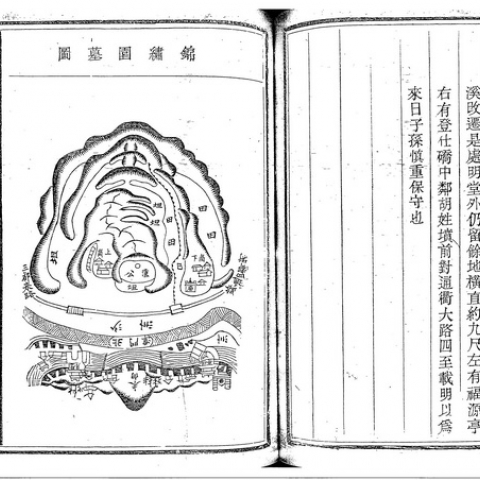 溪改遷是處明堂外仍留餘地橫直約九尺左有福源亭
右有登仕礄中鄰胡姓墳前對通衢大路四至載明以爲
來日子孫慎重保守也
錦繡園墓圖
田
田
田
田
坦
坦
公
坦
沙洲